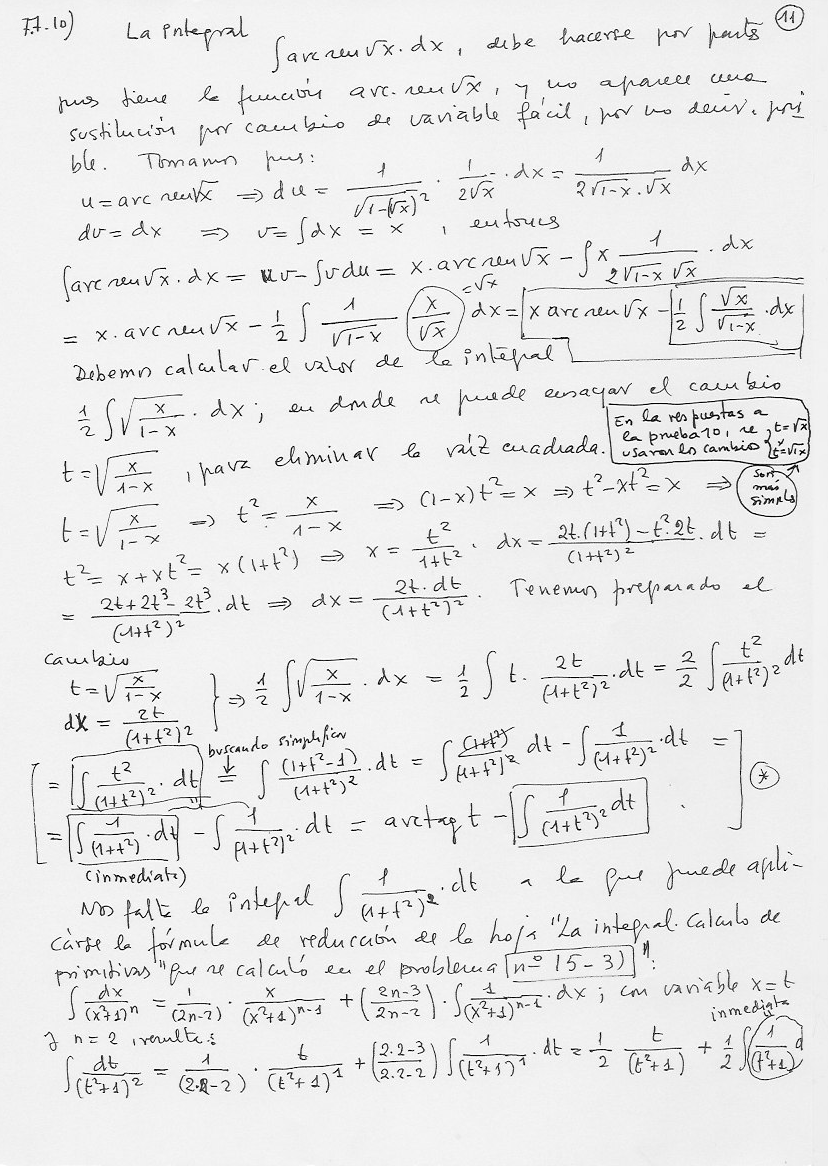 7.7.10) La integral ∫arc sen√x · dx, debe hacerse por parts 11
pues tiene la función arc. sen√x, y no aparece una
sustitución por cambio de variable fácil, por no decir, posi
ble. Tomamos pues:
u = arc sen√x ⇒ du = 1/√(1-(√x)²) · 1/(2√x) · dx = 1/(2√(1-x)·√x) dx
dv = dx ⇒ v = ∫dx = x, entonces
∫arc sen√x · dx = uv - ∫vdu = x · arc sen√x - ∫x 1/(2√(1-x) √x) · dx
= x · arc sen√x - 1/2 ∫ 1/√(1-x) (x/√x) =√x dx = x arc sen√x - 1/2 ∫ √x/√(1-x) · dx
Debemos calcular el valor de la integral
1/2 ∫√(x/(1-x)) · dx; en donde se puede ensayar el cambio
t = √(x/(1-x)), para eliminar la raíz cuadrada.
En la respuestas a
la prueba 10, se
usaron los cambio { t=√x
t=√1-x
son
más
simples
t = √(x/(1-x)) ⇒ t² = x/(1-x) ⇒ (1-x)t² = x ⇒ t²-xt² = x ⇒
t² = x+xt² = x(1+t²) ⇒ x = t²/(1+t²) · dx = (2t·(1+t²)-t²·2t)/(1+t²)² · dt =
= (2t+2t³-2t³)/(1+t²)² · dt ⇒ dx = 2t·dt/(1+t²)² · Tenemos preparado el
cambio
t = √(x/(1-x))
dx = 2t/(1+t²)² } ⇒ 1/2 ∫√(x/(1-x)) · dx = 1/2 ∫ t · 2t/(1+t²)² · dt = 2/2 ∫ t²/(1+t²)² dt
buscando simplificar
= ∫ t²/(1+t²)² · dt = ∫ (1+t²-1)/(1+t²)² · dt = ∫ (1+t²)/(1+t²)² dt - ∫ 1/(1+t²)² · dt =
= ∫ 1/(1+t²) · dt - ∫ 1/(1+t²)² · dt = arctag t - ∫ 1/(1+t²)² dt . ] *
(inmediata)
Nos falta la integral ∫ 1/(1+t²)² · dt a la que puede apli-
cárse la fórmula de reducción de la hoja "La integral. Calculo de
primitivas" que se calculó en el problema nº 15-3)":
∫ dx/(x²+1)ⁿ = 1/(2n-2) · x/(x²+1)ⁿ⁻¹ + ((2n-3)/(2n-2)) · ∫ 1/(x²+1)ⁿ⁻¹ · dx; con variable x=t
y n=2, resulta: inmediata
∫ dt/(t²+1)² = 1/(2·2-2) · t/(t²+1)¹ + ((2·2-3)/(2·2-2)) ∫ 1/(t²+1)¹ · dt = 1/2 t/(t²+1) + 1/2 ∫ 1/(t²+1) d